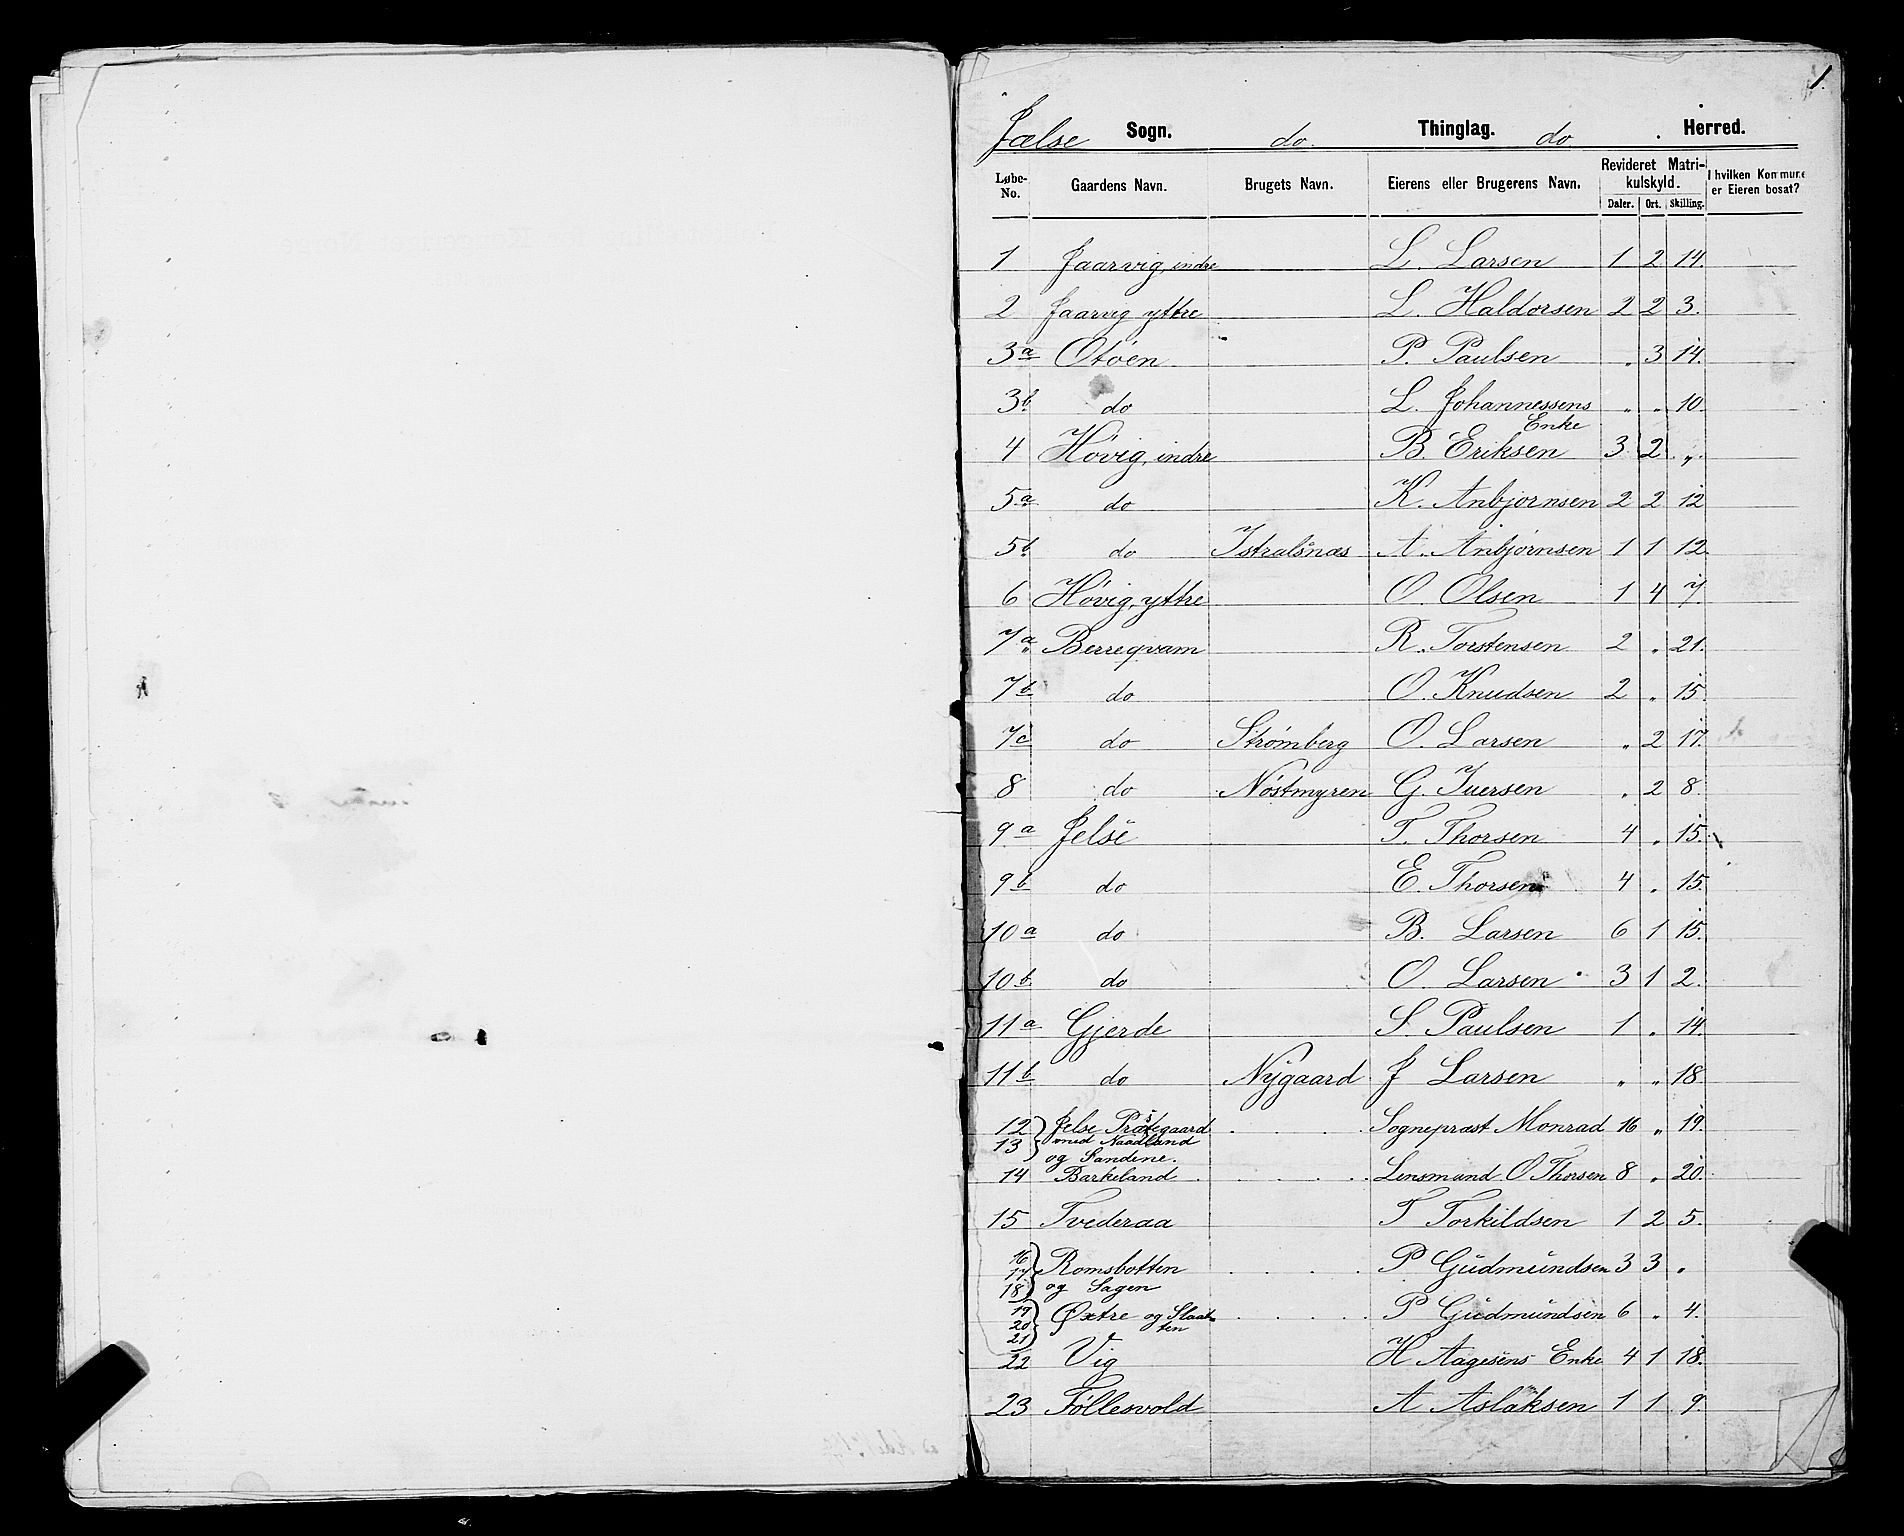 1.
Jælse Sogn. do. Thinglag. do Herred.
Løbe-No. Gaardens Navn. Brugets Navn. Eierens eller Brugerens Navn. Revideret Matrikulskyld. Daler. Ort. Skilling. I hvilken Kommune er Eieren bosat?
1 Jaarvig, indre L. Larsen 1 2 14.
2 Jaarvig yttre L. Haldorsen 2 2 3.
3a Otøen P. Paulsen " 3 14.
3b. do L. Johannessens Enke " " 10.
4 Høvig, indre B. Eriksen 3 2 "
5a do K. Anbjørnsen 2 2 12
5b. do Istralsnæs A. Anbjørnsen 1 1 12.
6 Høvig, yttre O. Olsen 1 4 7.
7a Berreqvam R. Torstensen 2 " 21.
7b do O. Knudsen 2 " 15.
7c do Strømberg O. Larsen " 2 17.
8 do Nøstmyren G. Iversen " 2 8.
9a Jelse T. Thorsen 4 " 15.
9b do E. Thorsen 4 " 15.
10a do B. Larsen 6 1 15.
10b. do O. Larsen 3 1 2.
11a Gjerde S. Paulsen 1 " 14.
11b do Nygaard J Larsen " " 18.
12 Jelse Præstegaard Sognepræst Monrad 16 " 19.
13 med Naadland
og Sandene.
14 Barkeland Lensmand O Thorsen 8 " 20.
15 Tvederaa T Torkildsen 1 2 5.
16
17 Romsbotten P Gudmundsen 3 3 "
18 og Sagen
19
20 Øxtre og Slaatten P Gudmundsen 6 " 4.
21
22 Vig H Aagesens Enke 4 1 18.
23 Føllesvold A Aslaksen 1 1 9.